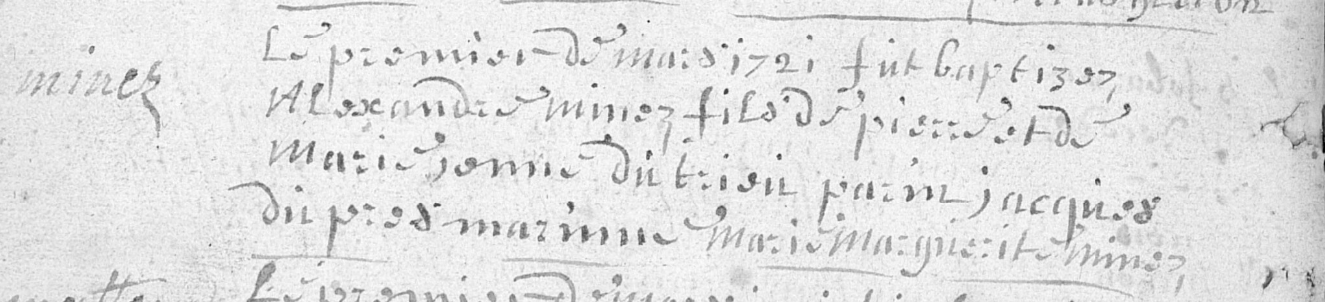 minez
Le premier de mars 1721 fut baptizez
Alexandre minez fils de pierre et de
Marie jenne du trieu parin jacques
du pres marinne Marie Marguerite minez
Le premier de mars